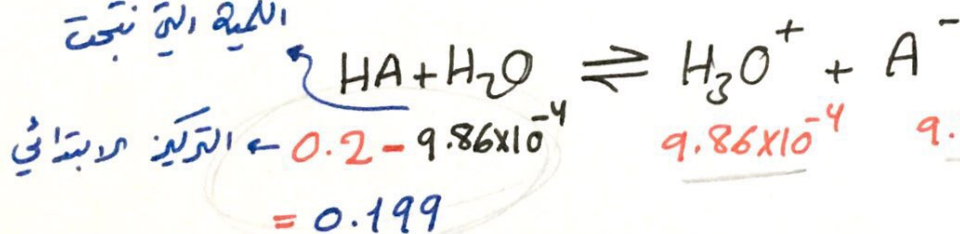 الكمية التي نتجت
HA + H₂O ⇌ H₃O⁺ + A⁻
التركيز الابتدائي ← 0.2 - 9.86x10⁻⁴ 9.86x10⁻⁴ 9.
= 0.199